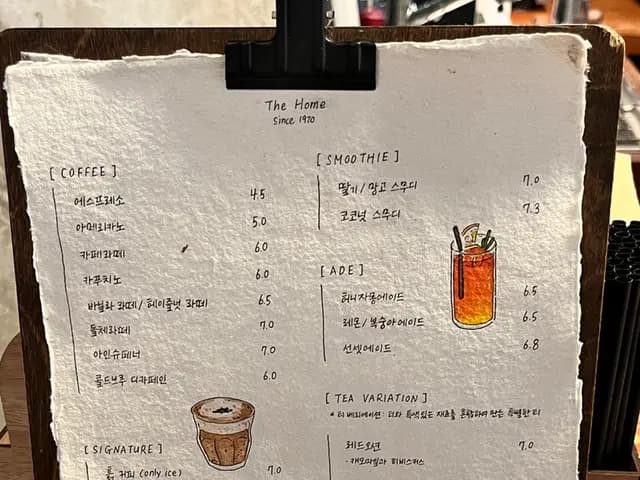 The Home
since 1970
[ COFFEE ]
에스프레소 4.5
아메리카노 5.0
카페라떼 6.0
카푸치노 6.0
바닐라 라떼 / 헤이즐넛 라떼 6.5
돌체라떼 7.0
아인슈페너 7.0
콜드브루 디카페인 6.0
[ SIGNATURE ]
커피 (only ice) 7.0
[ SMOOTHIE ]
딸기 / 망고 스무디 7.0
코코넛 스무디 7.3
[ ADE ]
허니자몽에이드 6.5
레몬 / 복숭아에이드 6.5
선셋에이드 6.8
[ TEA VARIATION ]
* 티 베리에이션 : 티와 특색있는 재료를 혼합하여 만든 특별한 티
레드오션 7.0
· 캐모마일과 히비스커스